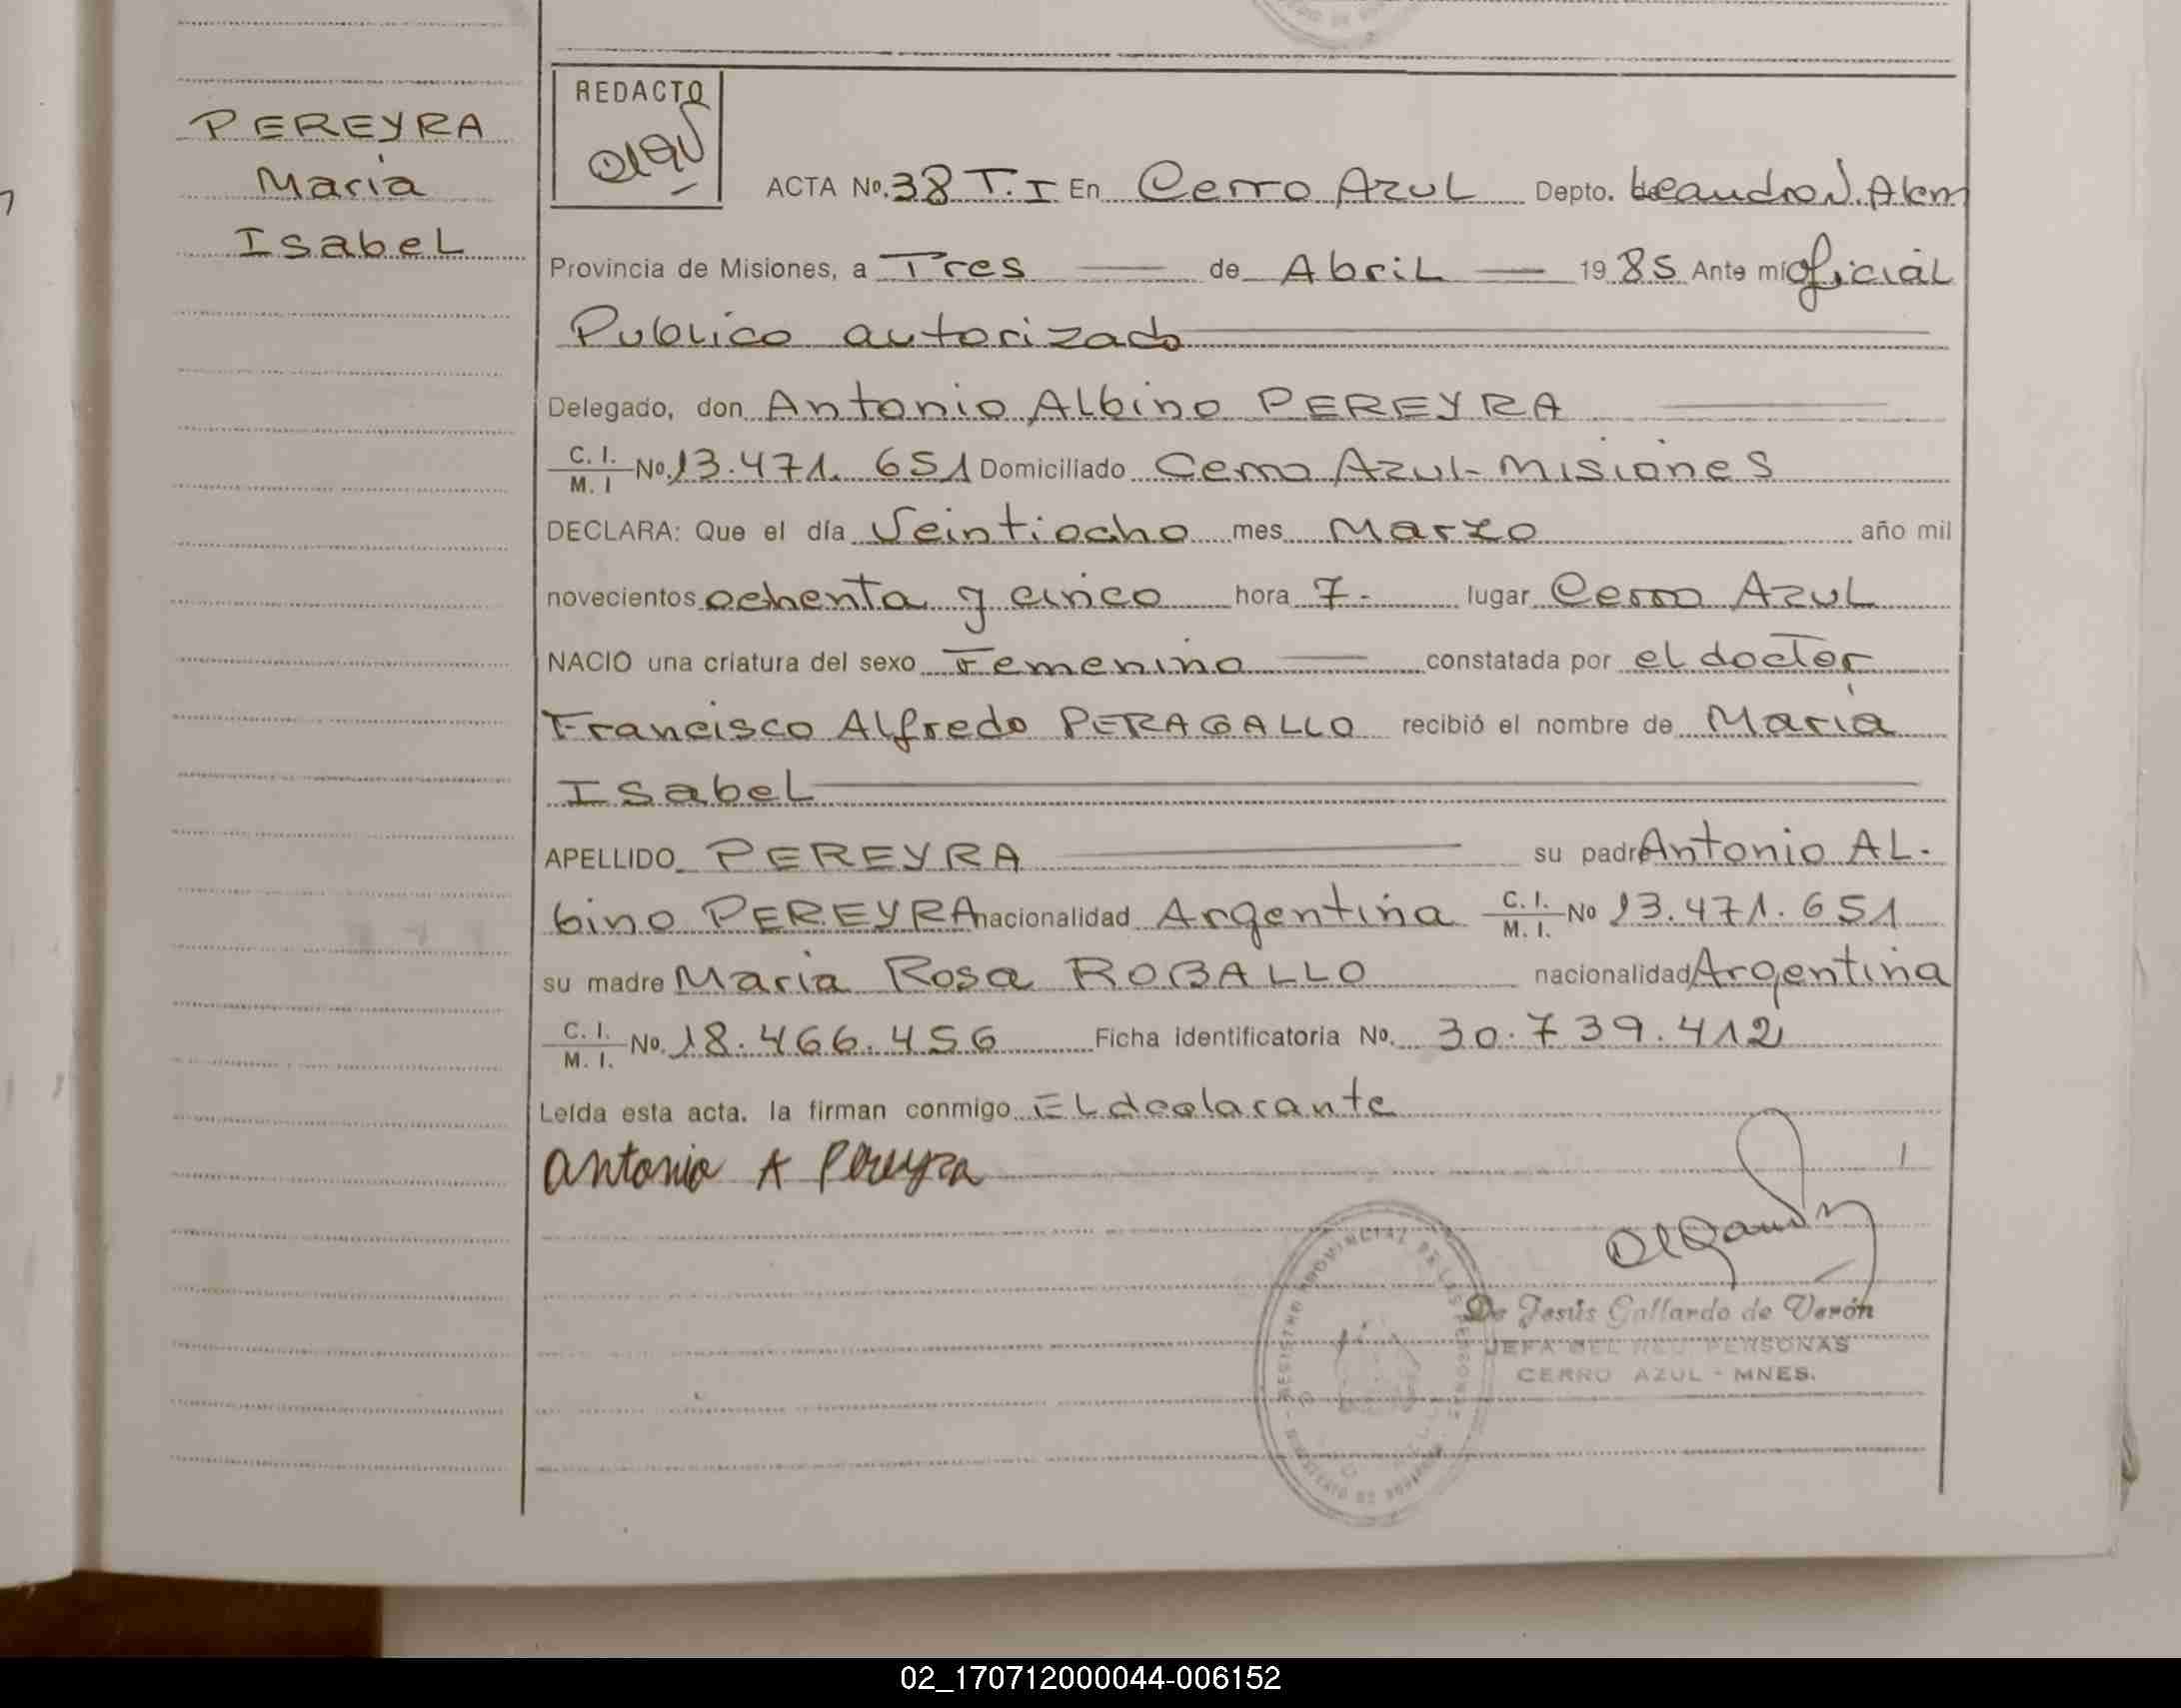 PEREYRA
Maria
Isabel
REDACTO
ACTA No. 38 T. I En Cerro Azul Depto. Leandro N. Alem
Provincia de Misiones, a Tres de Abril 1985 Ante mi oficial
Publico autorizado
Delegado, don Antonio Albino PEREYRA
C. I. M. I No. 13.471.651 Domiciliado Cerro Azul-Misiones
DECLARA: Que el día Veintiocho mes Marzo año mil
novecientos ochenta y cinco hora 7- lugar Cerro Azul
NACIO una criatura del sexo Femenino constatada por el doctor
Francisco Alfredo PERAGALLO recibió el nombre de Maria
Isabel
APELLIDO PEREYRA su padre Antonio AL-
bino PEREYRA nacionalidad Argentina C. I. M. I. No 13.471.651
su madre Maria Rosa ROBALLO nacionalidad Argentina
C. I. M. I. No. 18.466.456 Ficha identificatoria No. 30.739.412
Leída esta acta. la firman conmigo EL declarante
Antonio A Pereyra
De Jesús Gallardo de Verón
JEFA DEL REG PERSONAS
CERRO AZUL - MNES.
02_170712000044-006152